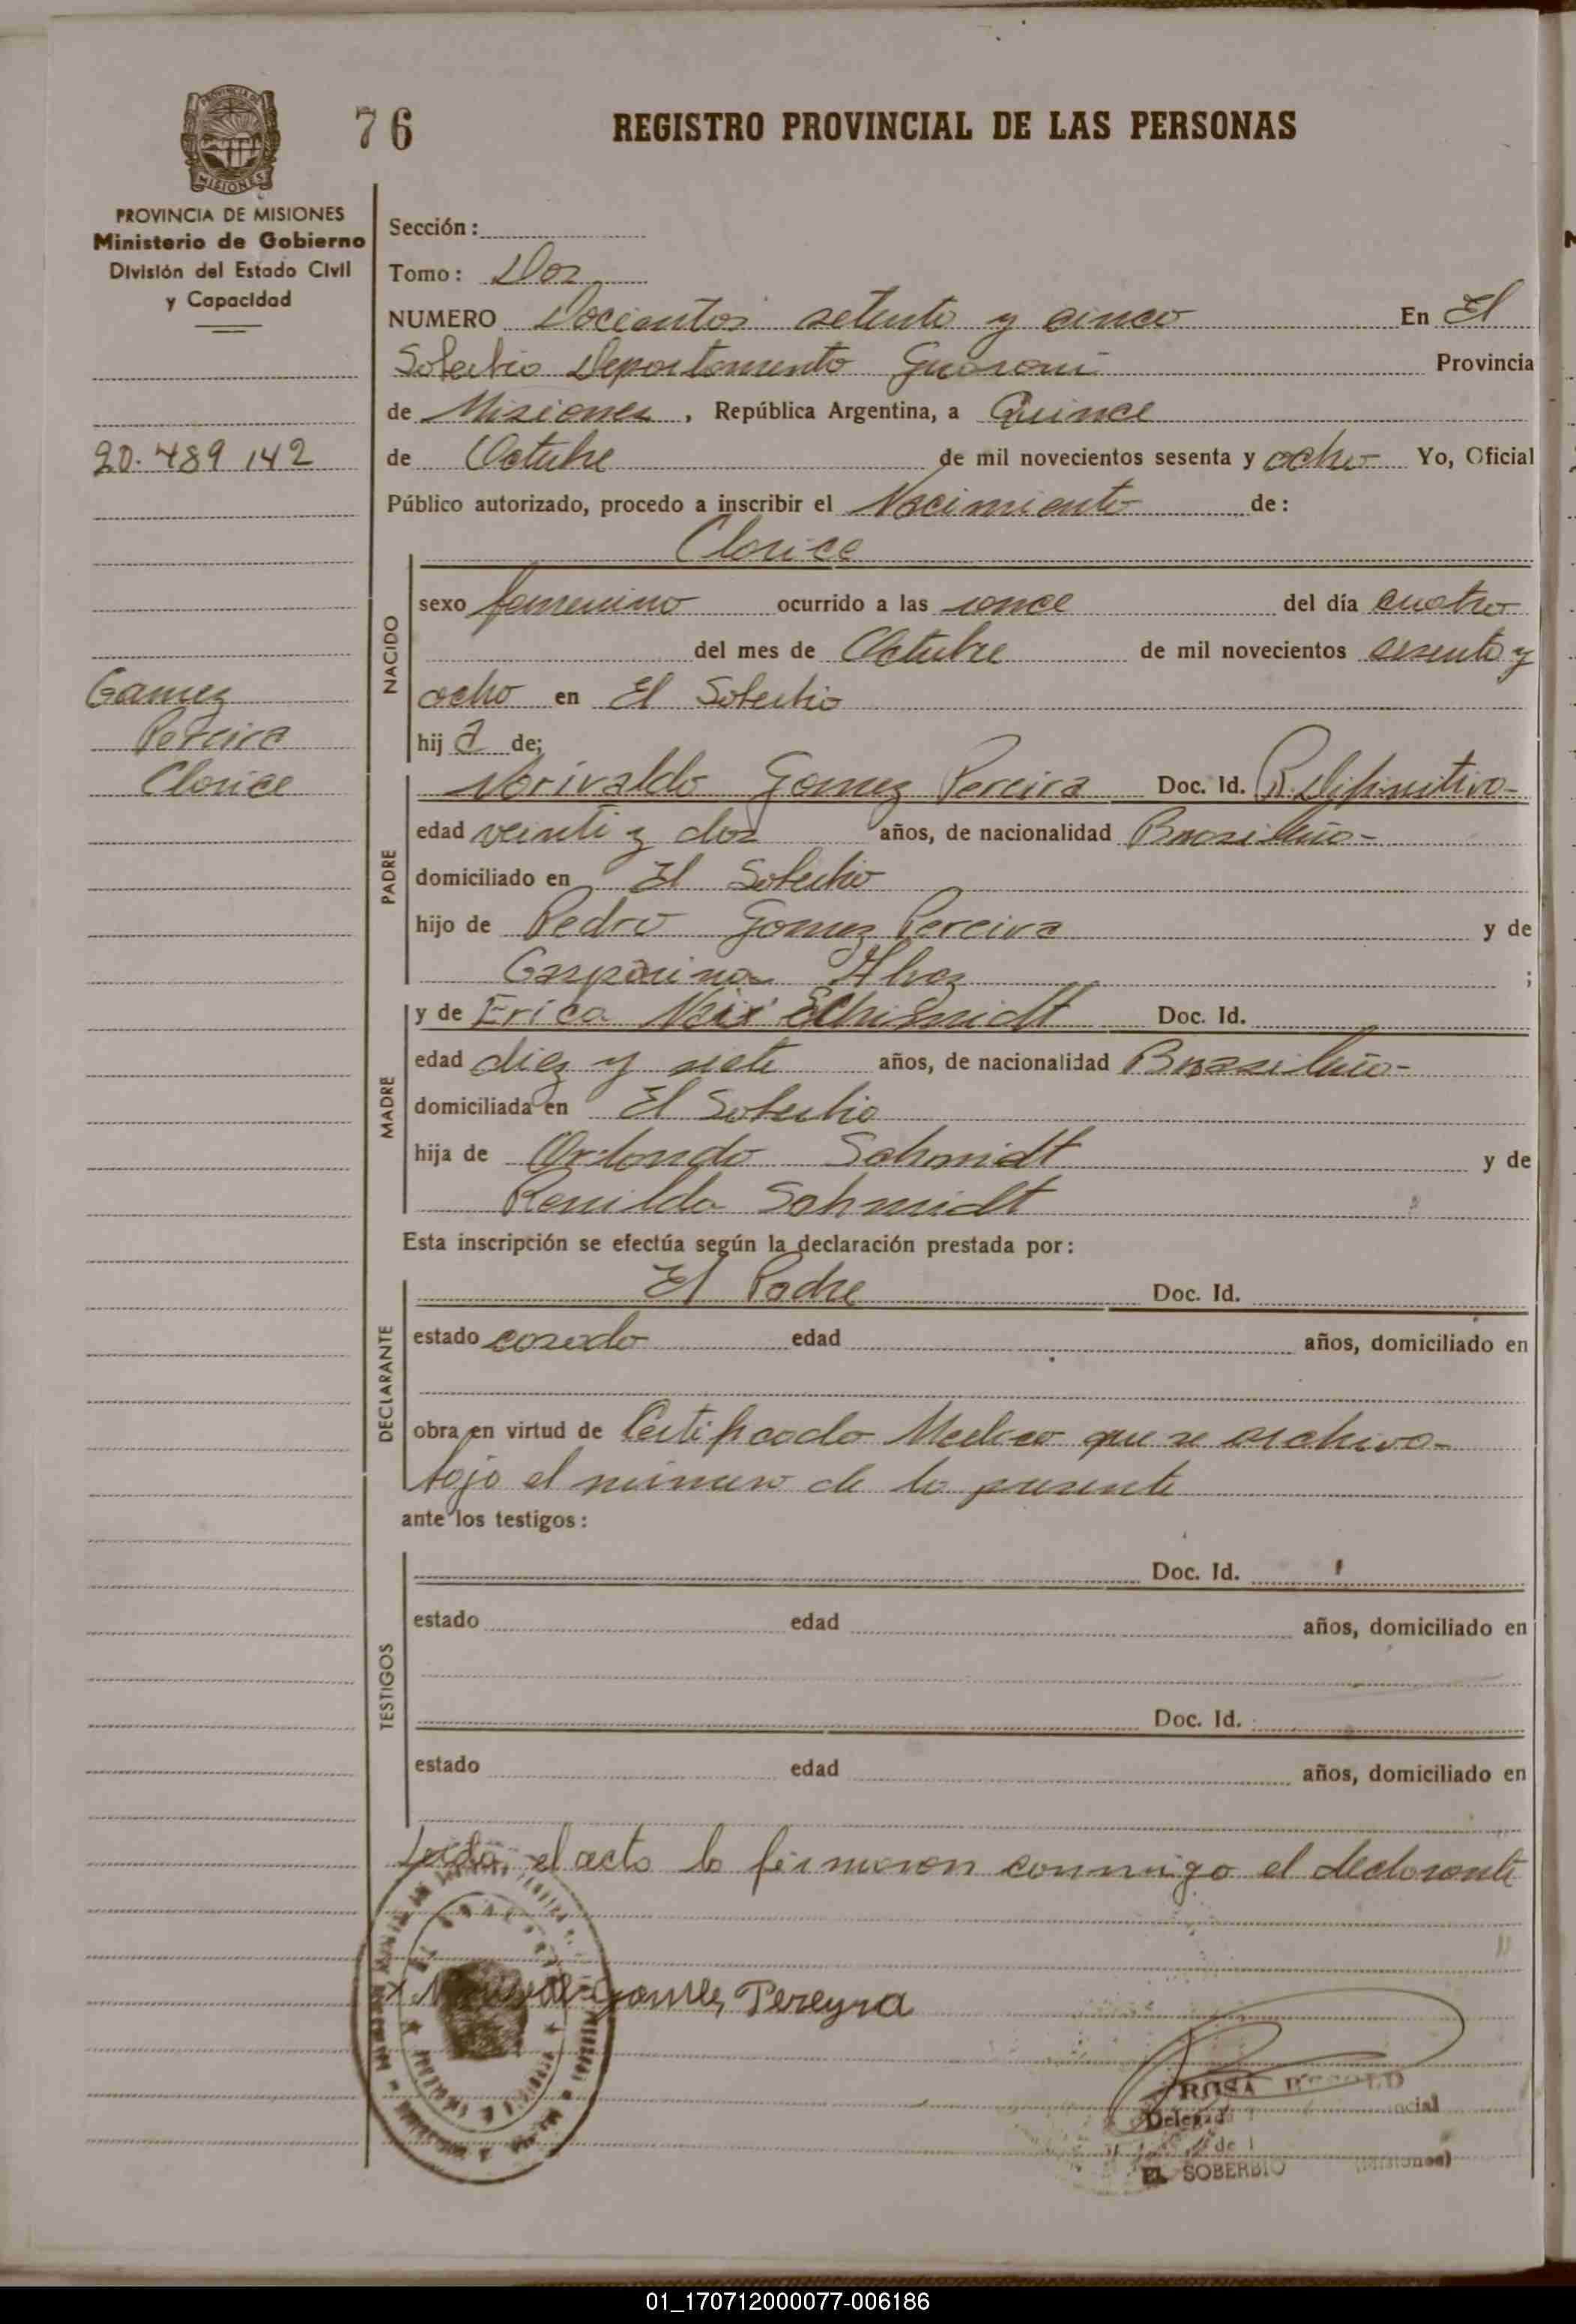 76
REGISTRO PROVINCIAL DE LAS PERSONAS
PROVINCIA DE
MISIONES
PROVINCIA DE MISIONES
Ministerio de Gobierno
División del Estado Civil
y Capacidad
20.489 142
Gomez
Pereira
Clorice
Sección:
Tomo: Dos
NUMERO Docientos setenta y cinco En El
Soberbio Departamento Guarani Provincia
de Misiones, República Argentina, a Quince
de Octubre de mil novecientos sesenta y ocho Yo, Oficial
Público autorizado, procedo a inscribir el Nacimiento de:
Clorice
NACIDO
sexo femenino ocurrido a las once del día cuatro
del mes de Octubre de mil novecientos sesenta y
ocho en El Soberbio
hij a de;
PADRE
Norivaldo Gomez Pereira Doc. Id. R. Difinitivo-
edad veinti y dos años, de nacionalidad Brasileño-
domiciliado en El Soberbio
hijo de Pedro Gomez Pereira y de
Gasparina Alvez ;
MADRE
y de Erica Doc. Id.
edad diez y siete años, de nacionalidad Brasileña-
domiciliada en El Soberbio
hija de Orlando Schmidt y de
Renilda Schmidt
Esta inscripción se efectúa según la declaración prestada por:
DECLARANTE
El Padre Doc. Id.
estado casado edad años, domiciliado en
obra en virtud de Certificado Medico que se archiva-
bajo el número de la presente
ante los testigos:
TESTIGOS
Doc. Id.
estado edad años, domiciliado en
Doc. Id.
estado edad años, domiciliado en
Leida el acta la firmaron conmigo el declarante
Gomes Pereyra
ROSA
Delegada
EL SOBERBIO (Misiones)
01_170712000077-006186